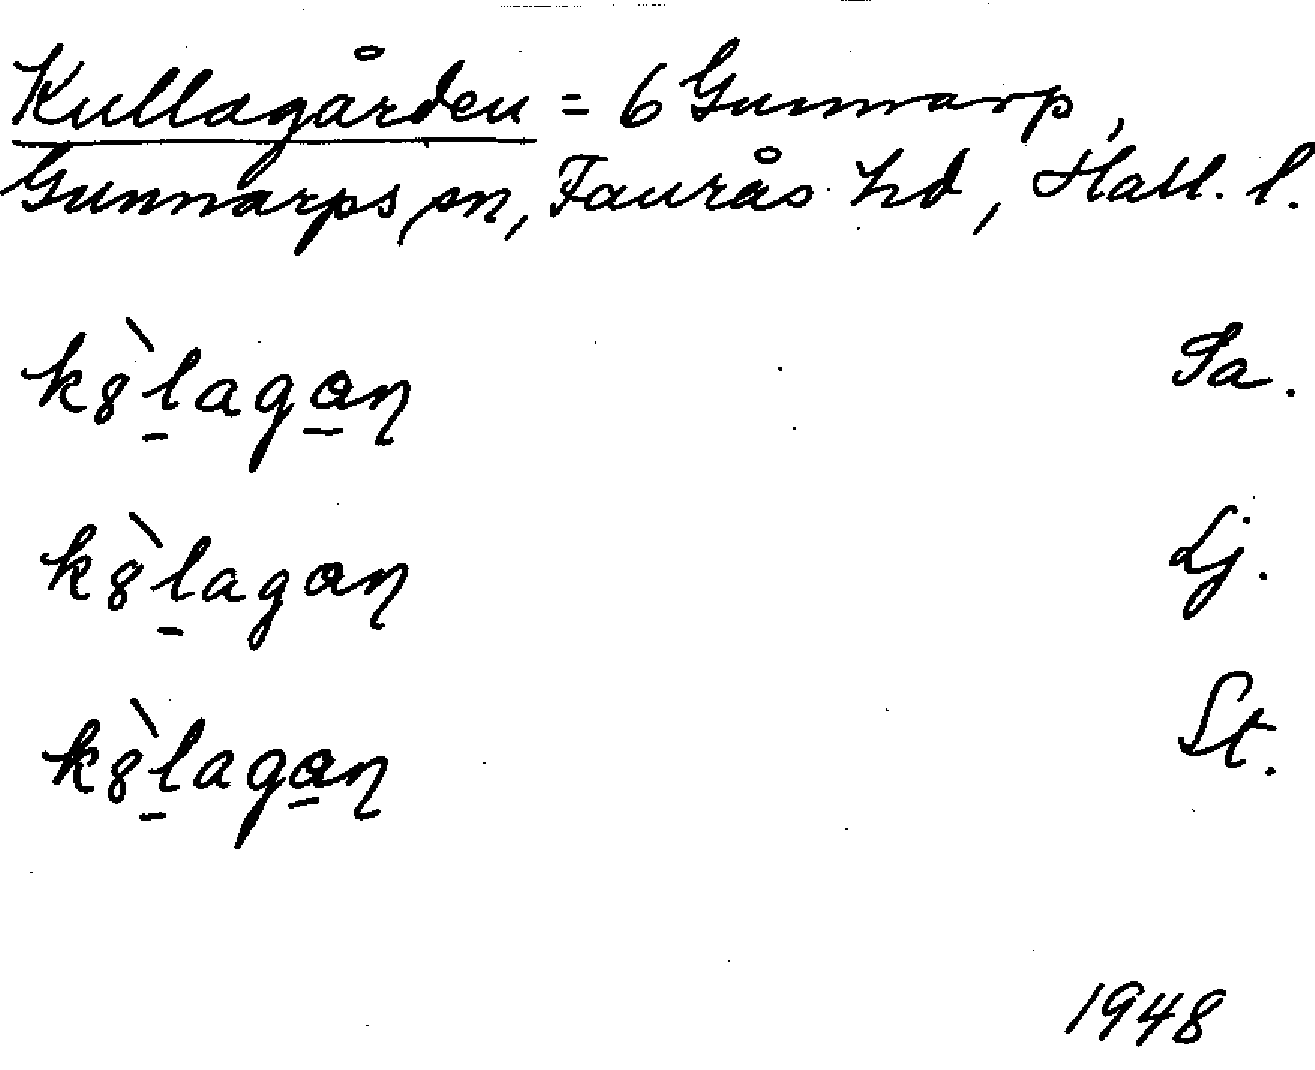 Kullagården = 6 Gunnarp,
Gunnarps sn, Faurås hd, Hall. l.
k8̀ḻaga̱ŋ Sa.
k8̀ḻagaŋ Lj.
k8̀ḻaga̱ŋ St.
1948